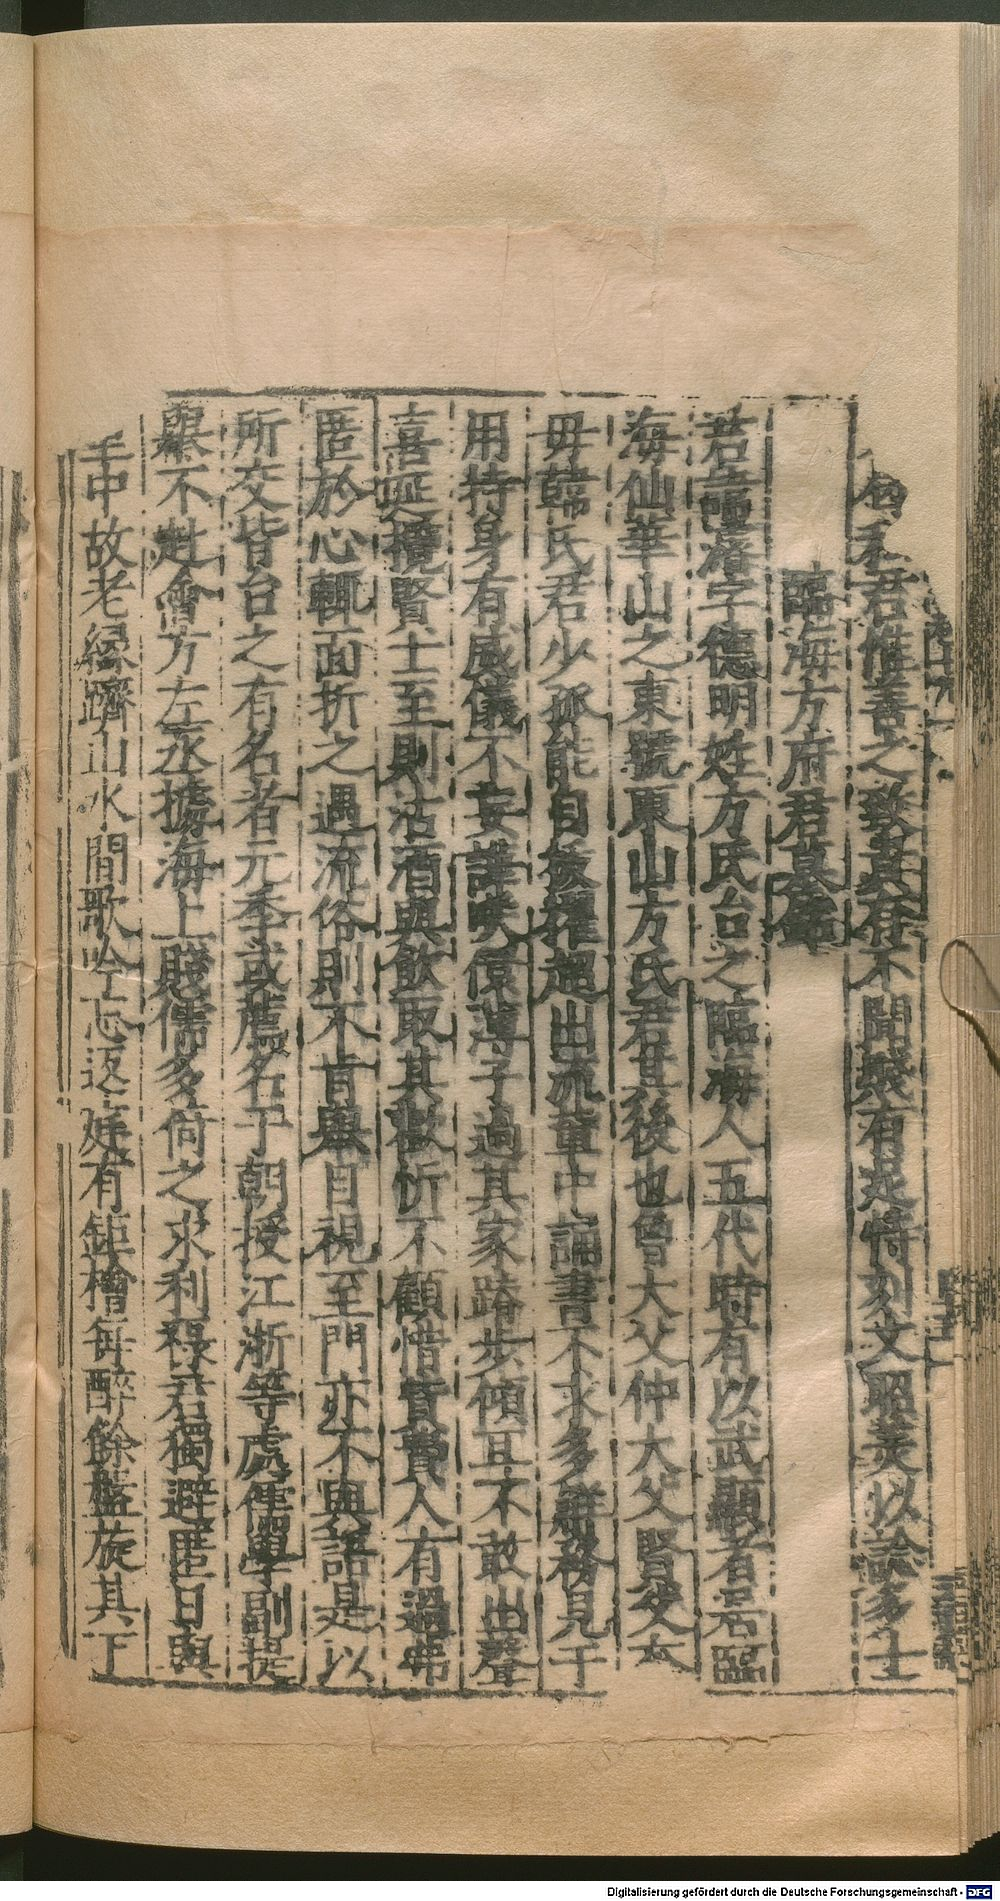 君惟善之致其存不聞歿有足恃刻文昭美以諗多士
臨海方府君墓銘
君諱濬字德明姓方氏台之臨海人五代時有以武顯者居臨
海仙華山之東號東山方氏君其後也曾大父仲大父賢父太
毋韓氏君少孤能自拔擢超出流輩中誦書不求多辭務見于
用持身有威儀不妄譁咲儇薄子過其家踏步傾耳不敢出聲
喜延攬賢士至則沽酒與飲取其歡忻不顧惜貲費人有過弗
匿於心輒面折之遇流俗則不肯舉目視至門亦不與語是以
所交皆台之有名者元季或薦名于朝授江浙等處儒學副提
舉不赴會方左丞據海上賤儒多倚之求利祿君獨避匿日與
中故老緣躋山水間歌吟忘返庭有鉅檜每醉餘盤旋其下
Digitalisierung gefördert durch die Deutsche Forschungsgemeinschaft - DFG